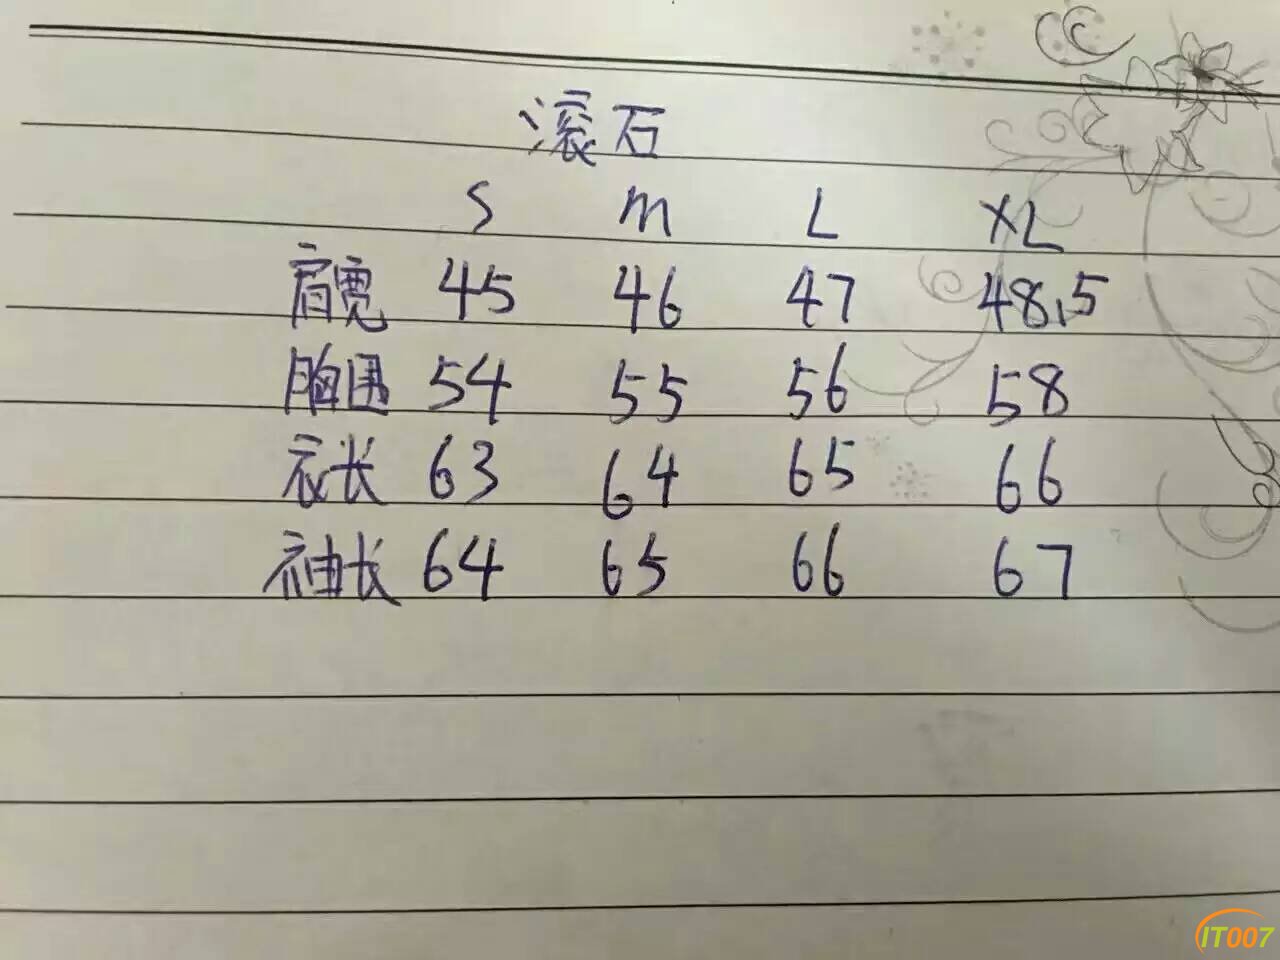 滚石
S m L XL
肩宽 45 46 47 48.5
胸围 54 55 56 58
衣长 63 64 65 66
袖长 64 65 66 67
IT007